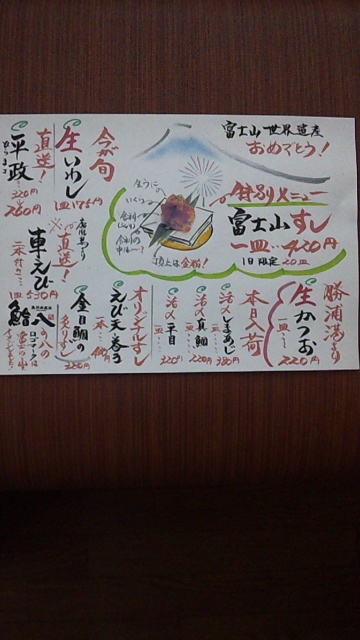 富士山世界遺産
おめでとう!
特別メニュー
富士山すし
一皿…420円
1日限定20皿
生うに
いくら
頂上は金粉!
勝浦港より
生かつお
一皿…220円
本日入荷
活〆しまあじ
一皿…380円
活〆真鯛
一皿…220円
活〆平目
220円
オリジナルすし
えび天巻き
一本…
金目鯛の
炙り
220円
今が旬
生いわし
1皿175円
直送!
平政…
ひらまさ
320円
260円
直送!
車えび
二本付き…
1皿530円
鮨八
ロゴマークは
富士の山